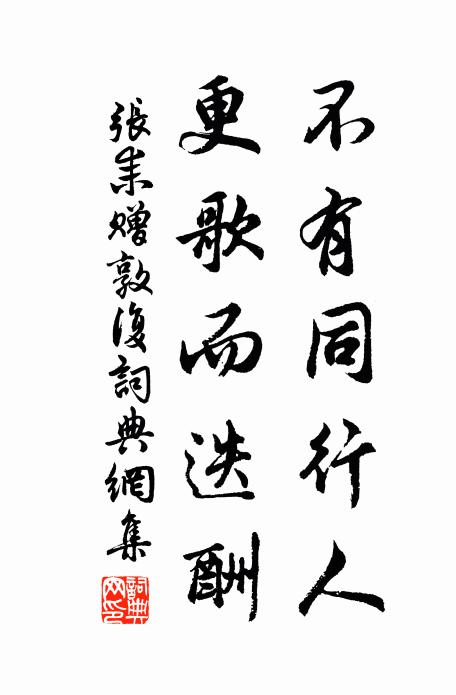 不有同行人
更歌而迭酬
張耒贈敦復詞典網集
詞典網印